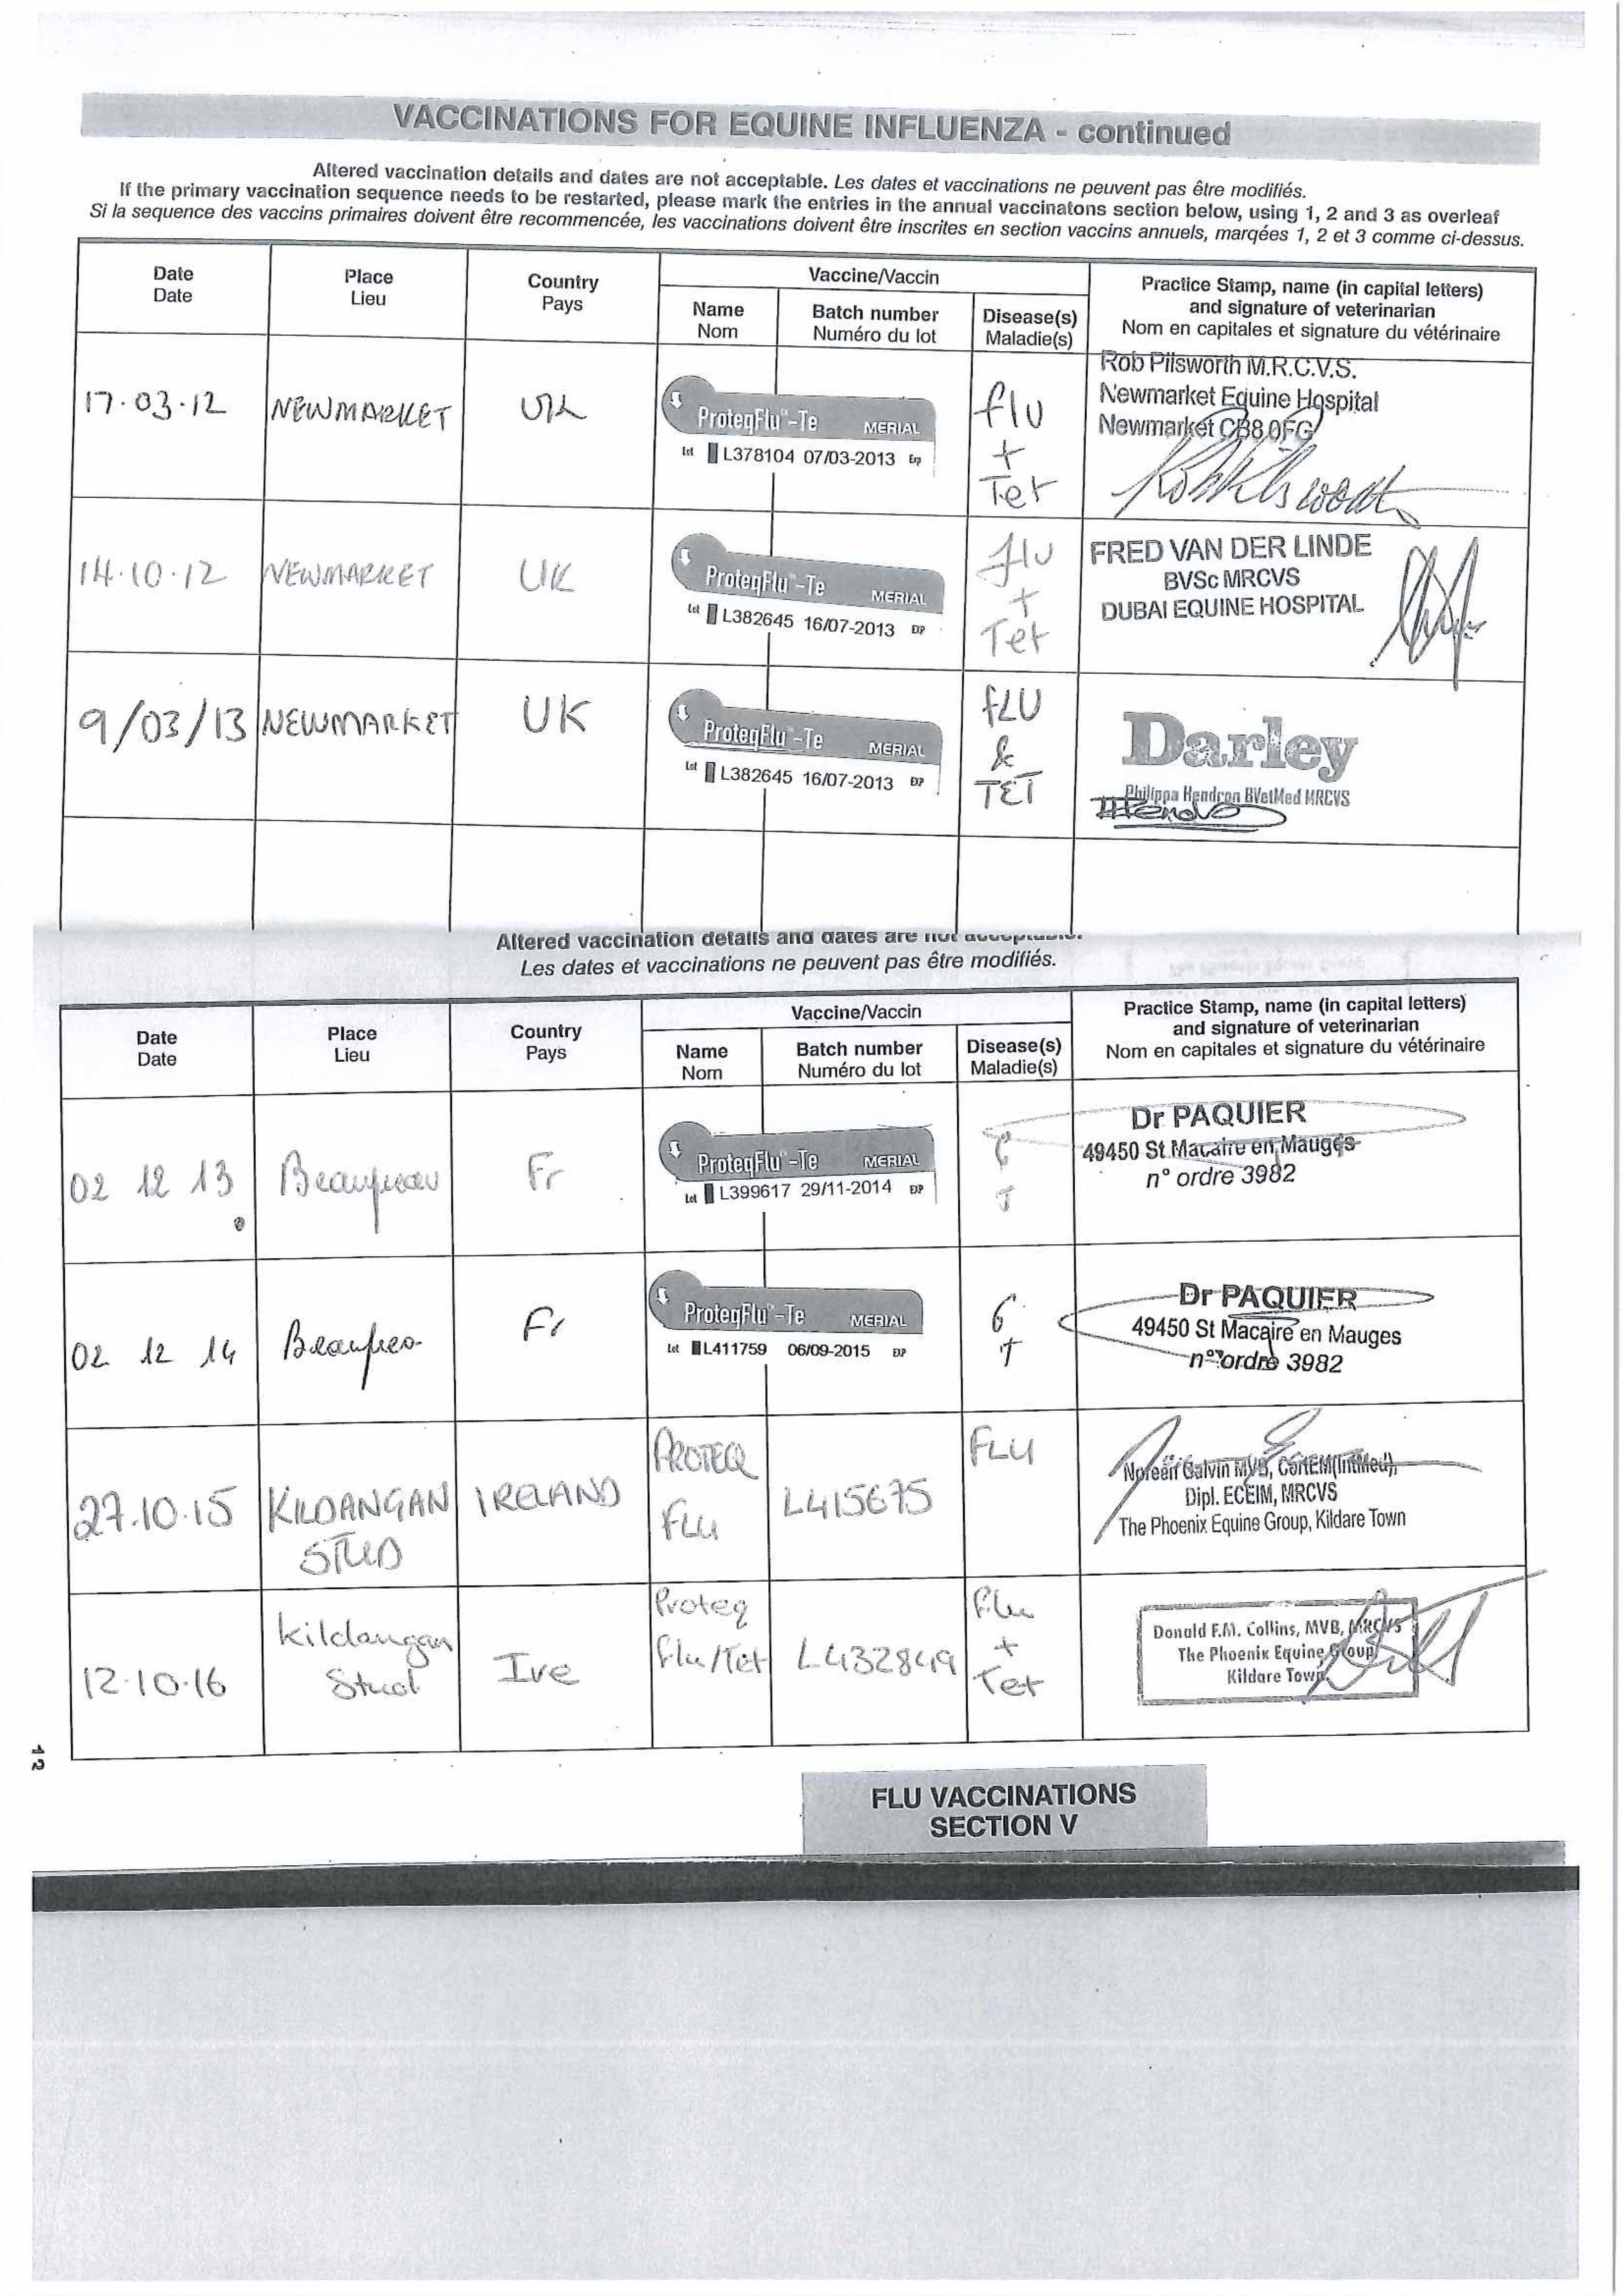 VACCINATIONS FOR EQUINE INFLUENZA - continued
Altered vaccination details and dates are not acceptable. Les dates et vaccinations ne peuvent pas être modifiés.
If the primary vaccination sequence needs to be restarted, please mark the entries in the annual vaccinatons section below, using 1, 2 and 3 as overleaf
Si la sequence des vaccins primaires doivent être recommencée, les vaccinations doivent être inscrites en section vaccins annuels, marqées 1, 2 et 3 comme ci-dessus.
Date
Date
Place
Lieu
Country
Pays
Vaccine/Vaccin
Name
Nom
Batch number
Numéro du lot
Disease(s)
Maladie(s)
Practice Stamp, name (in capital letters)
and signature of veterinarian
Nom en capitales et signature du vétérinaire
17.03.12
NEWMARKET
UK
ProteqFlu™-Te MERIAL
Lot L378104 07/03-2013 Exp
flu
+
Tet
Rob Pilsworth M.R.C.V.S.
Newmarket Equine Hospital
Newmarket CB8 0FG
14.10.12
NEWMARKET
UK
ProteqFlu™-Te MERIAL
Lot L382645 16/07-2013 EXP
flu
+
Tet
FRED VAN DER LINDE
BVSc MRCVS
DUBAI EQUINE HOSPITAL
9/03/13
NEWMARKET
UK
ProteqFlu™-Te MERIAL
Lot L382645 16/07-2013 EXP
FLU
&
TET
Darley
Philippa Hendron BVetMed MRCVS
Altered vaccination details and dates are not acceptable.
Les dates et vaccinations ne peuvent pas être modifiés.
Date
Date
Place
Lieu
Country
Pays
Vaccine/Vaccin
Name
Nom
Batch number
Numéro du lot
Disease(s)
Maladie(s)
Practice Stamp, name (in capital letters)
and signature of veterinarian
Nom en capitales et signature du vétérinaire
02 12 13
Beaupreau
Fr
ProteqFlu™-Te MERIAL
Lot L399617 29/11-2014 EXP
G
T
Dr PAQUIER
49450 St Macaire en Mauges
n° ordre 3982
02 12 14
Fr
ProteqFlu™-Te MERIAL
Lot L411759 06/09-2015 EXP
G
T
Dr PAQUIER
49450 St Macaire en Mauges
n° ordre 3982
27.10.15
KILDANGAN
STUD
IRELAND
PROTEQ
FLU
L415675
FLU
Noreen Galvin MVB, CertEM(IntMed),
Dipl. ECEIM, MRCVS
The Phoenix Equine Group, Kildare Town
12.10.16
Kildangan
Stud
Ire
Proteq
flu/Tet
L432849
Flu
+
Tet
Donald F.M. Collins, MVB, MRCVS
The Phoenix Equine Group
Kildare Town
12
FLU VACCINATIONS
SECTION V